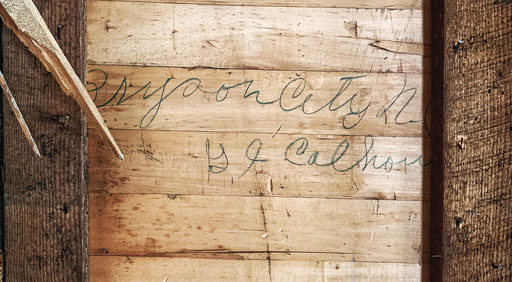 Bryson City N
G J Calhou